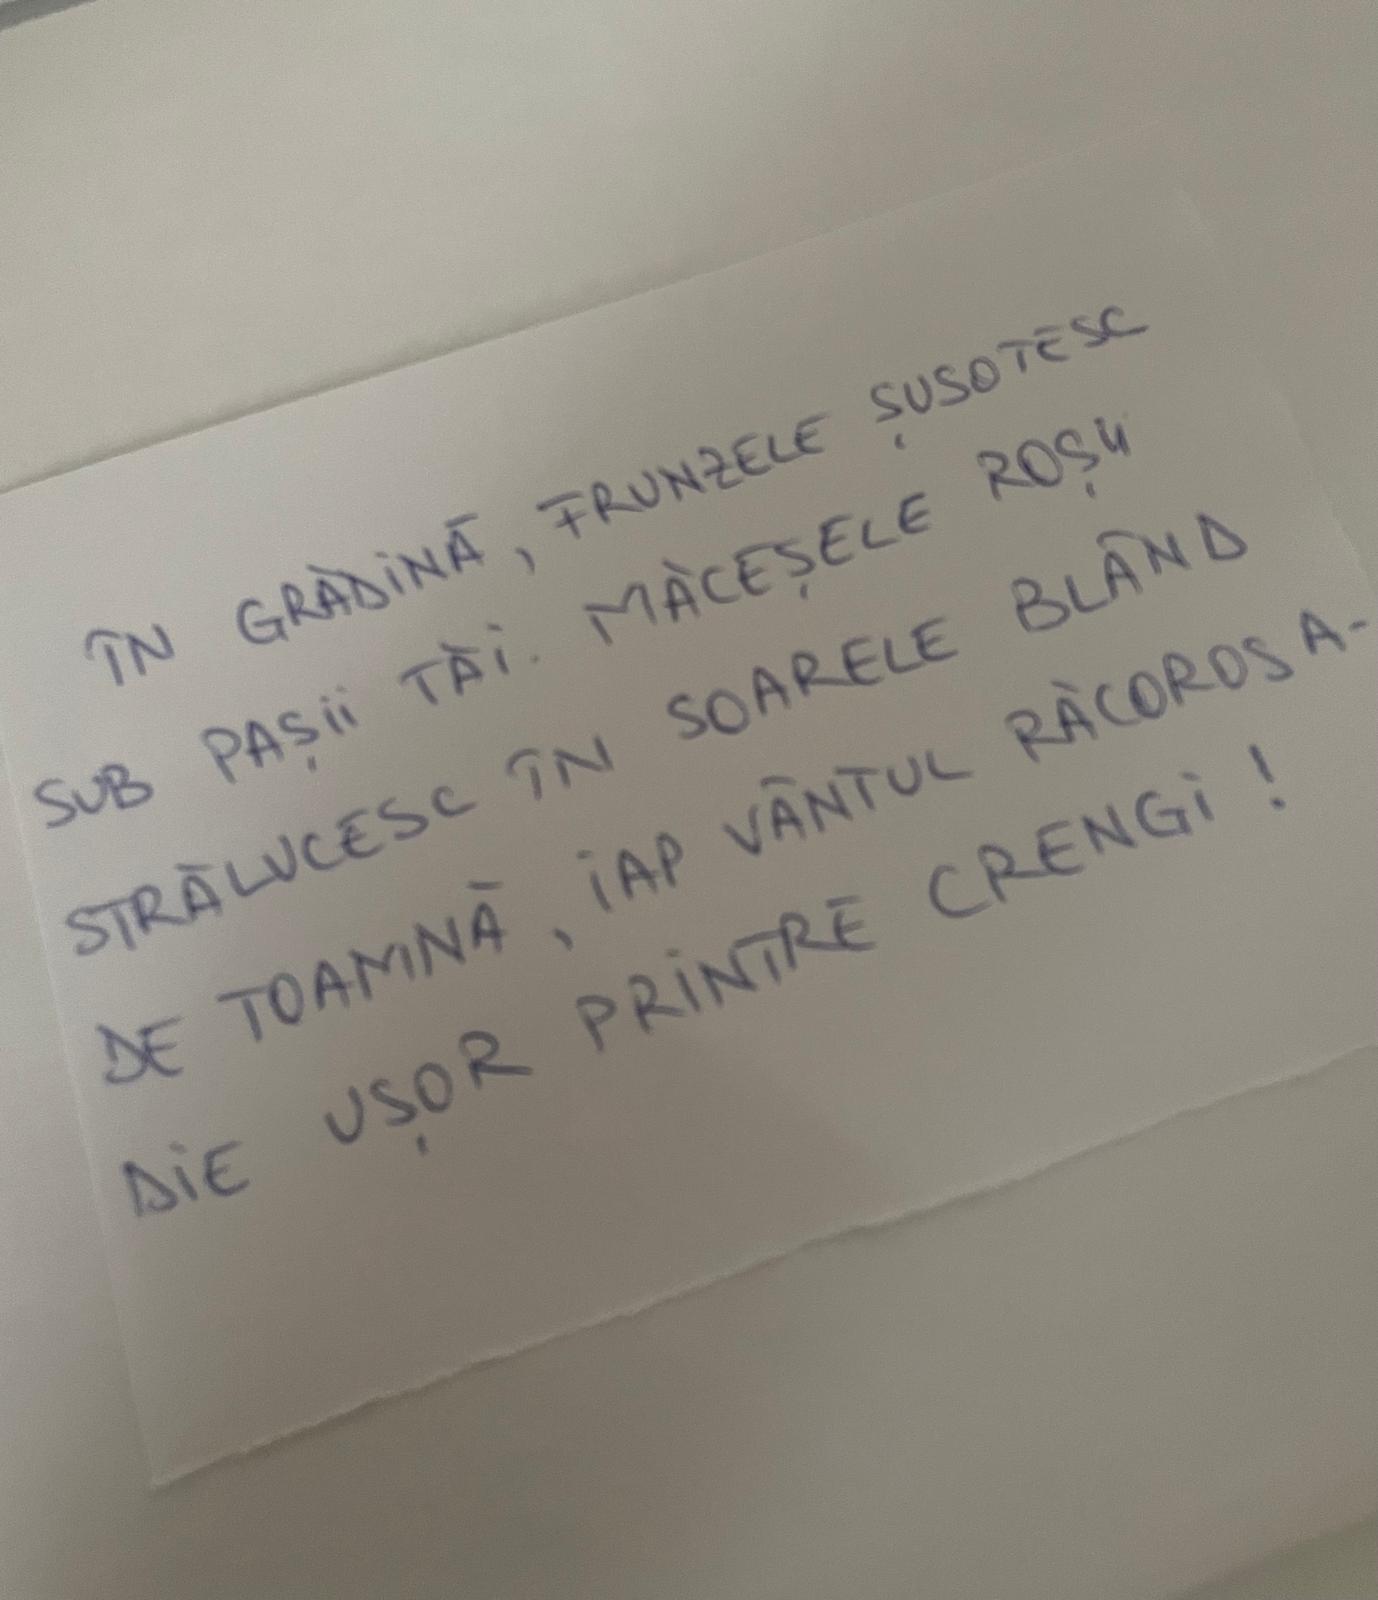 ÎN GRĂDINĂ, FRUNZELE ȘUSOTESC
SUB PAȘII TĂI. MĂCEȘELE ROȘII
STRĂLUCESC ÎN SOARELE BLÂND
DE TOAMNĂ, IAP VÂNTUL RĂCOROS A-
DIE UȘOR PRINTRE CRENGI!